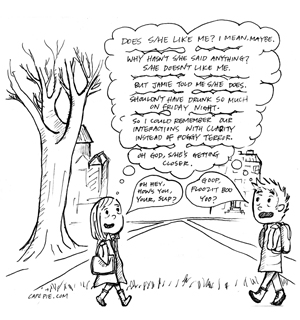 DOES S/HE LIKE ME? I MEAN. MAYBE.
WHY HASN'T SHE SAID ANYTHING?
S/HE DOESN'T LIKE ME.
BUT JAMIE TOLD ME S/HE DOES.
SHOULDN'T HAVE DRUNK SO MUCH
ON FRIDAY NIGHT.
SO I COULD REMEMBER OUR
INTERACTIONS WITH CLARITY
INSTEAD OF FOGGY TERROR.
OH GOD, S/HE'S GETTING
CLOSER.
OH HEY,
HOW'S YOU,
YOUR, SUP?
GOOP,
YOO?
CAFEPIE.COM